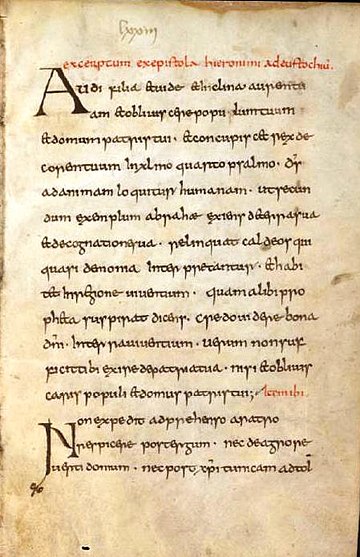 lxxiii
excerptum ex epistola hieronimi ad eustochiū.
Audi filia & uide & inclina aurem tu
am & obliuiscere populum tuum
& domum patris tui · & concupisc& rex de
corem tuum In xlmo quarto psalmo · d̄s
ad animam loquitur humanam · ut secun
dum exemplum abrahae exiens de terra sua
& de cognatione sua · relinquat caldeos qui
quasi demonia Inter pretantur · & habi
t& In regione uiuentium · quam alibi pro
ph&a suspirat dicens · credo uidere bona
dn̄i · In terra uiuentium · uerum non suf
ficit tibi exire de patria tua · nisi & obliuis
caris populi & domus patris tui ; Item ibi.
Non expedit adprehenso aratro
respicere postergum · nec de agro re
uerti domum · nec post xp̄i tunicam ad tol